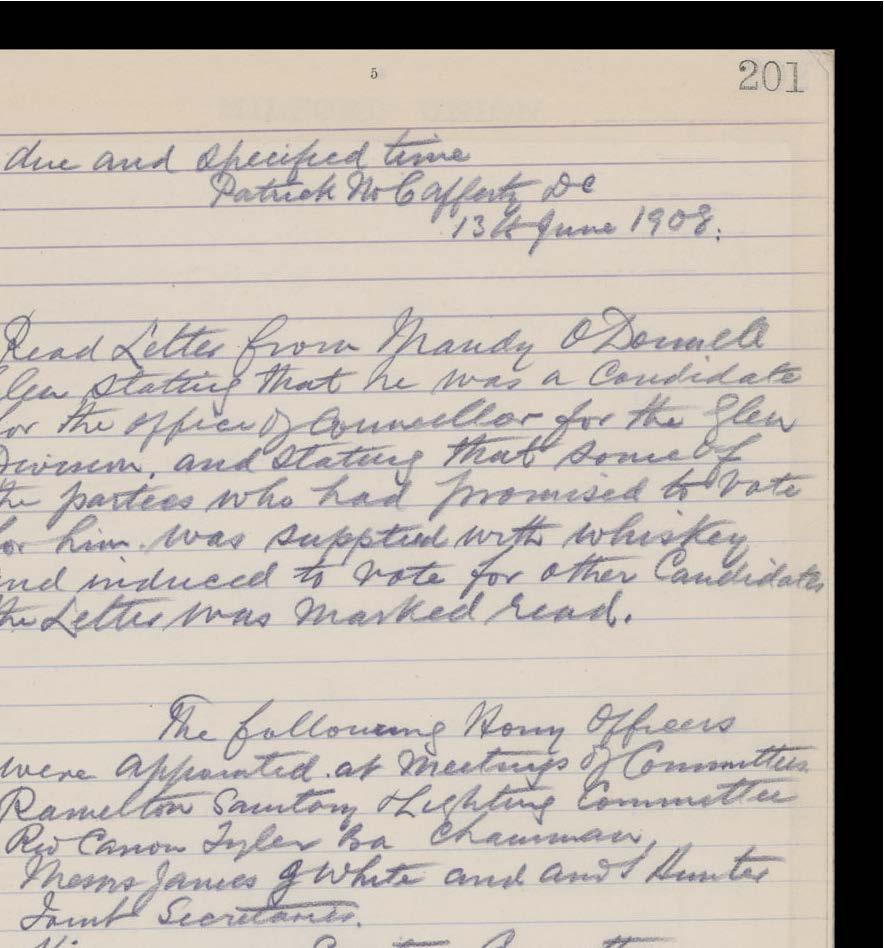 5
201
due and specified time
Patrick McCafferty DC
13th June 1908.
Read Letter from Mandy O'Donnell
Glen stating that he was a Candidate
for the office of Councillor for the Glen
Division, and stating that some of
the parties who had promised to vote
for him was supplied with whiskey
and induced to vote for other Candidates
the Letter was marked read.
The following Hony Officers
were appointed at Meetings of Committees
Ramelton Sanitary & Lighting Committee
Rev Canon Tyler Ba Chairman,
Messrs James G White and And Hunter
Joint Secretaries.